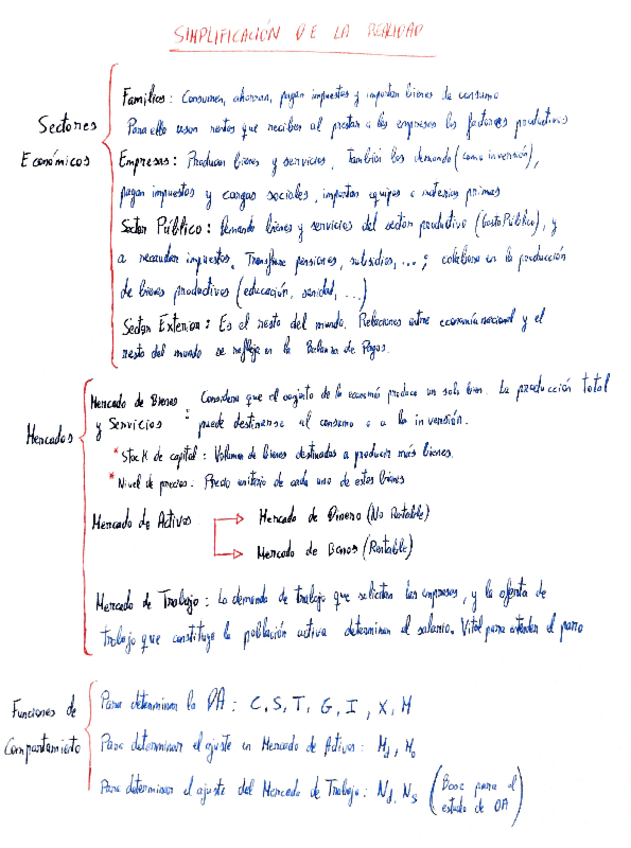 SIMPLIFICACIÓN DE LA REALIDAD
Sectores
Económicos
Familias: Consumen, ahorran, pagan impuestos y importan bienes de consumo
Para ello usan rentas que reciben al prestar a las empresas los factores productivos
Empresas: Producen bienes y servicios. También los demanda (como inversión),
pagan impuestos y cargas sociales, importan equipos o materias primas
Sector Público: Demanda bienes y servicios del sector productivo (Gasto Público), y
a recaudar impuestos. Transfiere pensiones, subsidios, ...; colabora en la producción
de bienes productivos (educación, sanidad, ...)
Sector Exterior: Es el resto del mundo. Relaciones entre economía nacional y el
resto del mundo se refleja en la Balanza de Pagos.
Mercados
Mercado de Bienes
y Servicios :
Considera que el conjunto de la economía produce un solo bien. La producción total
puede destinarse al consumo o a la inversión.
* Stock de capital: Volumen de bienes destinados a producir más bienes.
* Nivel de precios: Precio unitario de cada uno de estos bienes
Mercado de Activos
Mercado de Dinero (No Rentable)
Mercado de Bonos (Rentable)
Mercado de Trabajo: La demanda de trabajo que solicitan las empresas, y la oferta de
trabajo que constituye la población activa determinan el salario. Vital para entender el paro
Funciones de
Comportamiento
Para determinar la DA: C, S, T, G, I, X, M
Para determinar el ajuste en Mercado de Activos: Md, Mo
Para determinar el ajuste del Mercado de Trabajo: Nd, Ns (Base para el
estudio de OA)